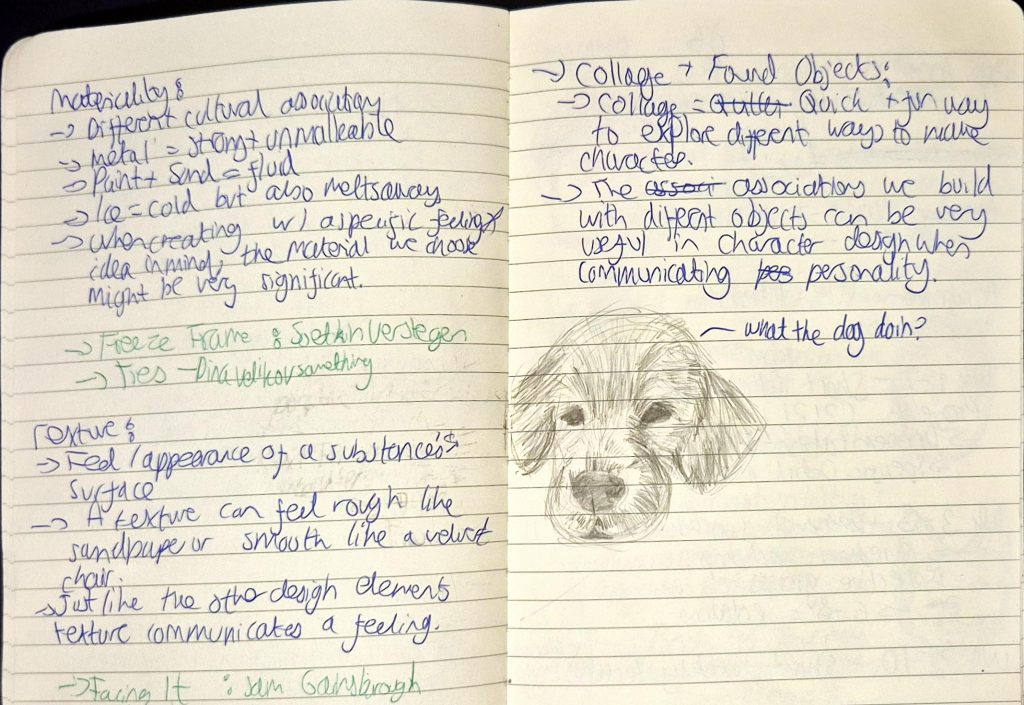 Materiality:
→ Different cultural association
→ Metal = strong + unmalleable
→ Paint + Sand = fluid
→ Ice = cold but also melts away
→ When creating w/ a specific feeling/
idea in mind, the material we choose
might be very significant.
→ Freeze Frame : Soetkin Verstegen
→ Ties - Dina Velikovsomething
Texture:
→ Feel / appearance of a substance's
surface
→ A texture can feel rough like
sandpaper or smooth like a velvet
chair.
→ Just like the other design elements
texture communicates a feeling.
→ Facing It : Sam Gainsbrough
→ Collage + Found Objects:
→ Collage = Quick + fun way
to explore different ways to make
character.
→ The associations we build
with different objects can be very
useful in character design when
communicating personality.
what the dog doin?